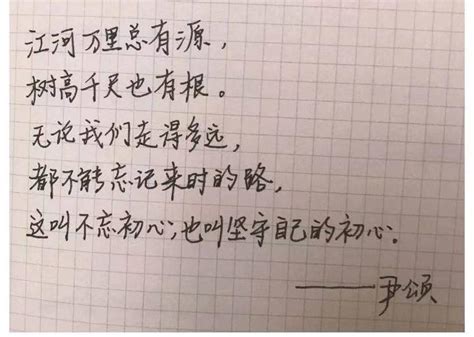 江河万里总有源，
树高千尺也有根。
无说我们走得多远，
都不能忘记来时的路，
这叫不忘初心；也叫坚守自己的初心。
——尹颂